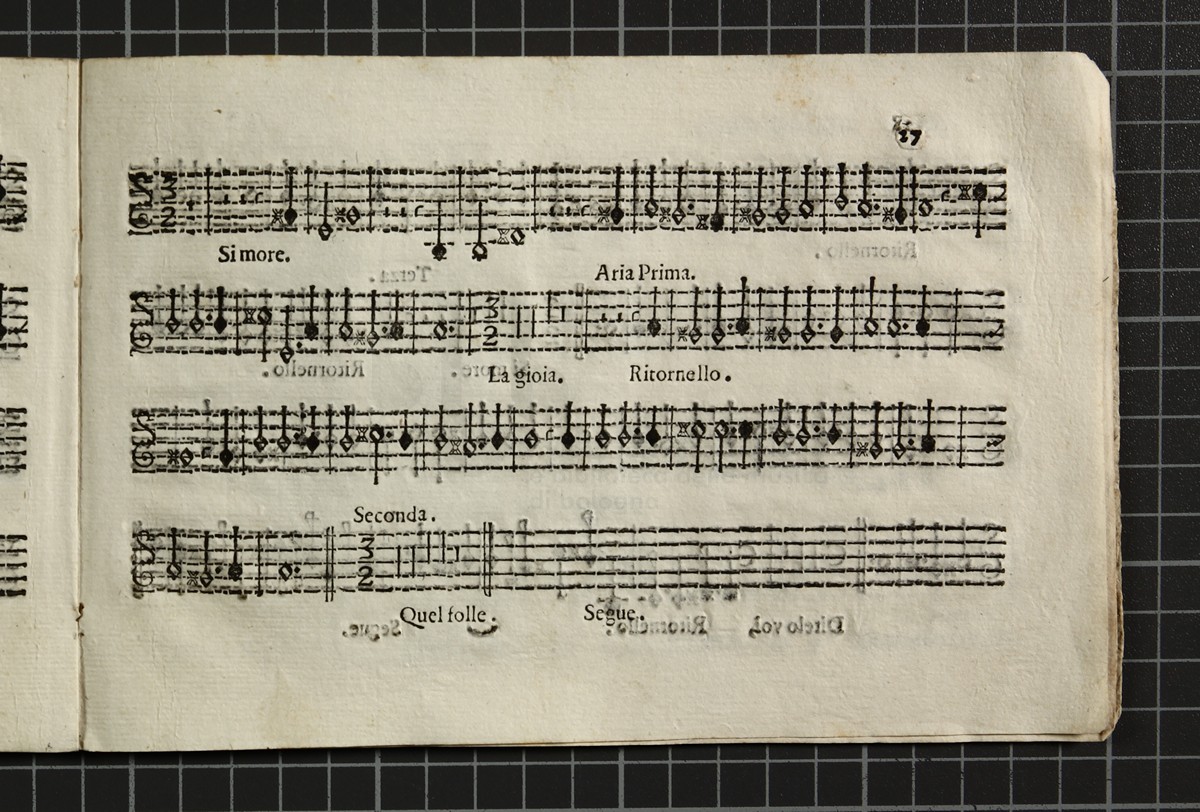 27
3
2
Si more.
Aria Prima.
3
2
La gioia.
Ritornello.
Seconda.
3
2
Quel folle.
Segue.